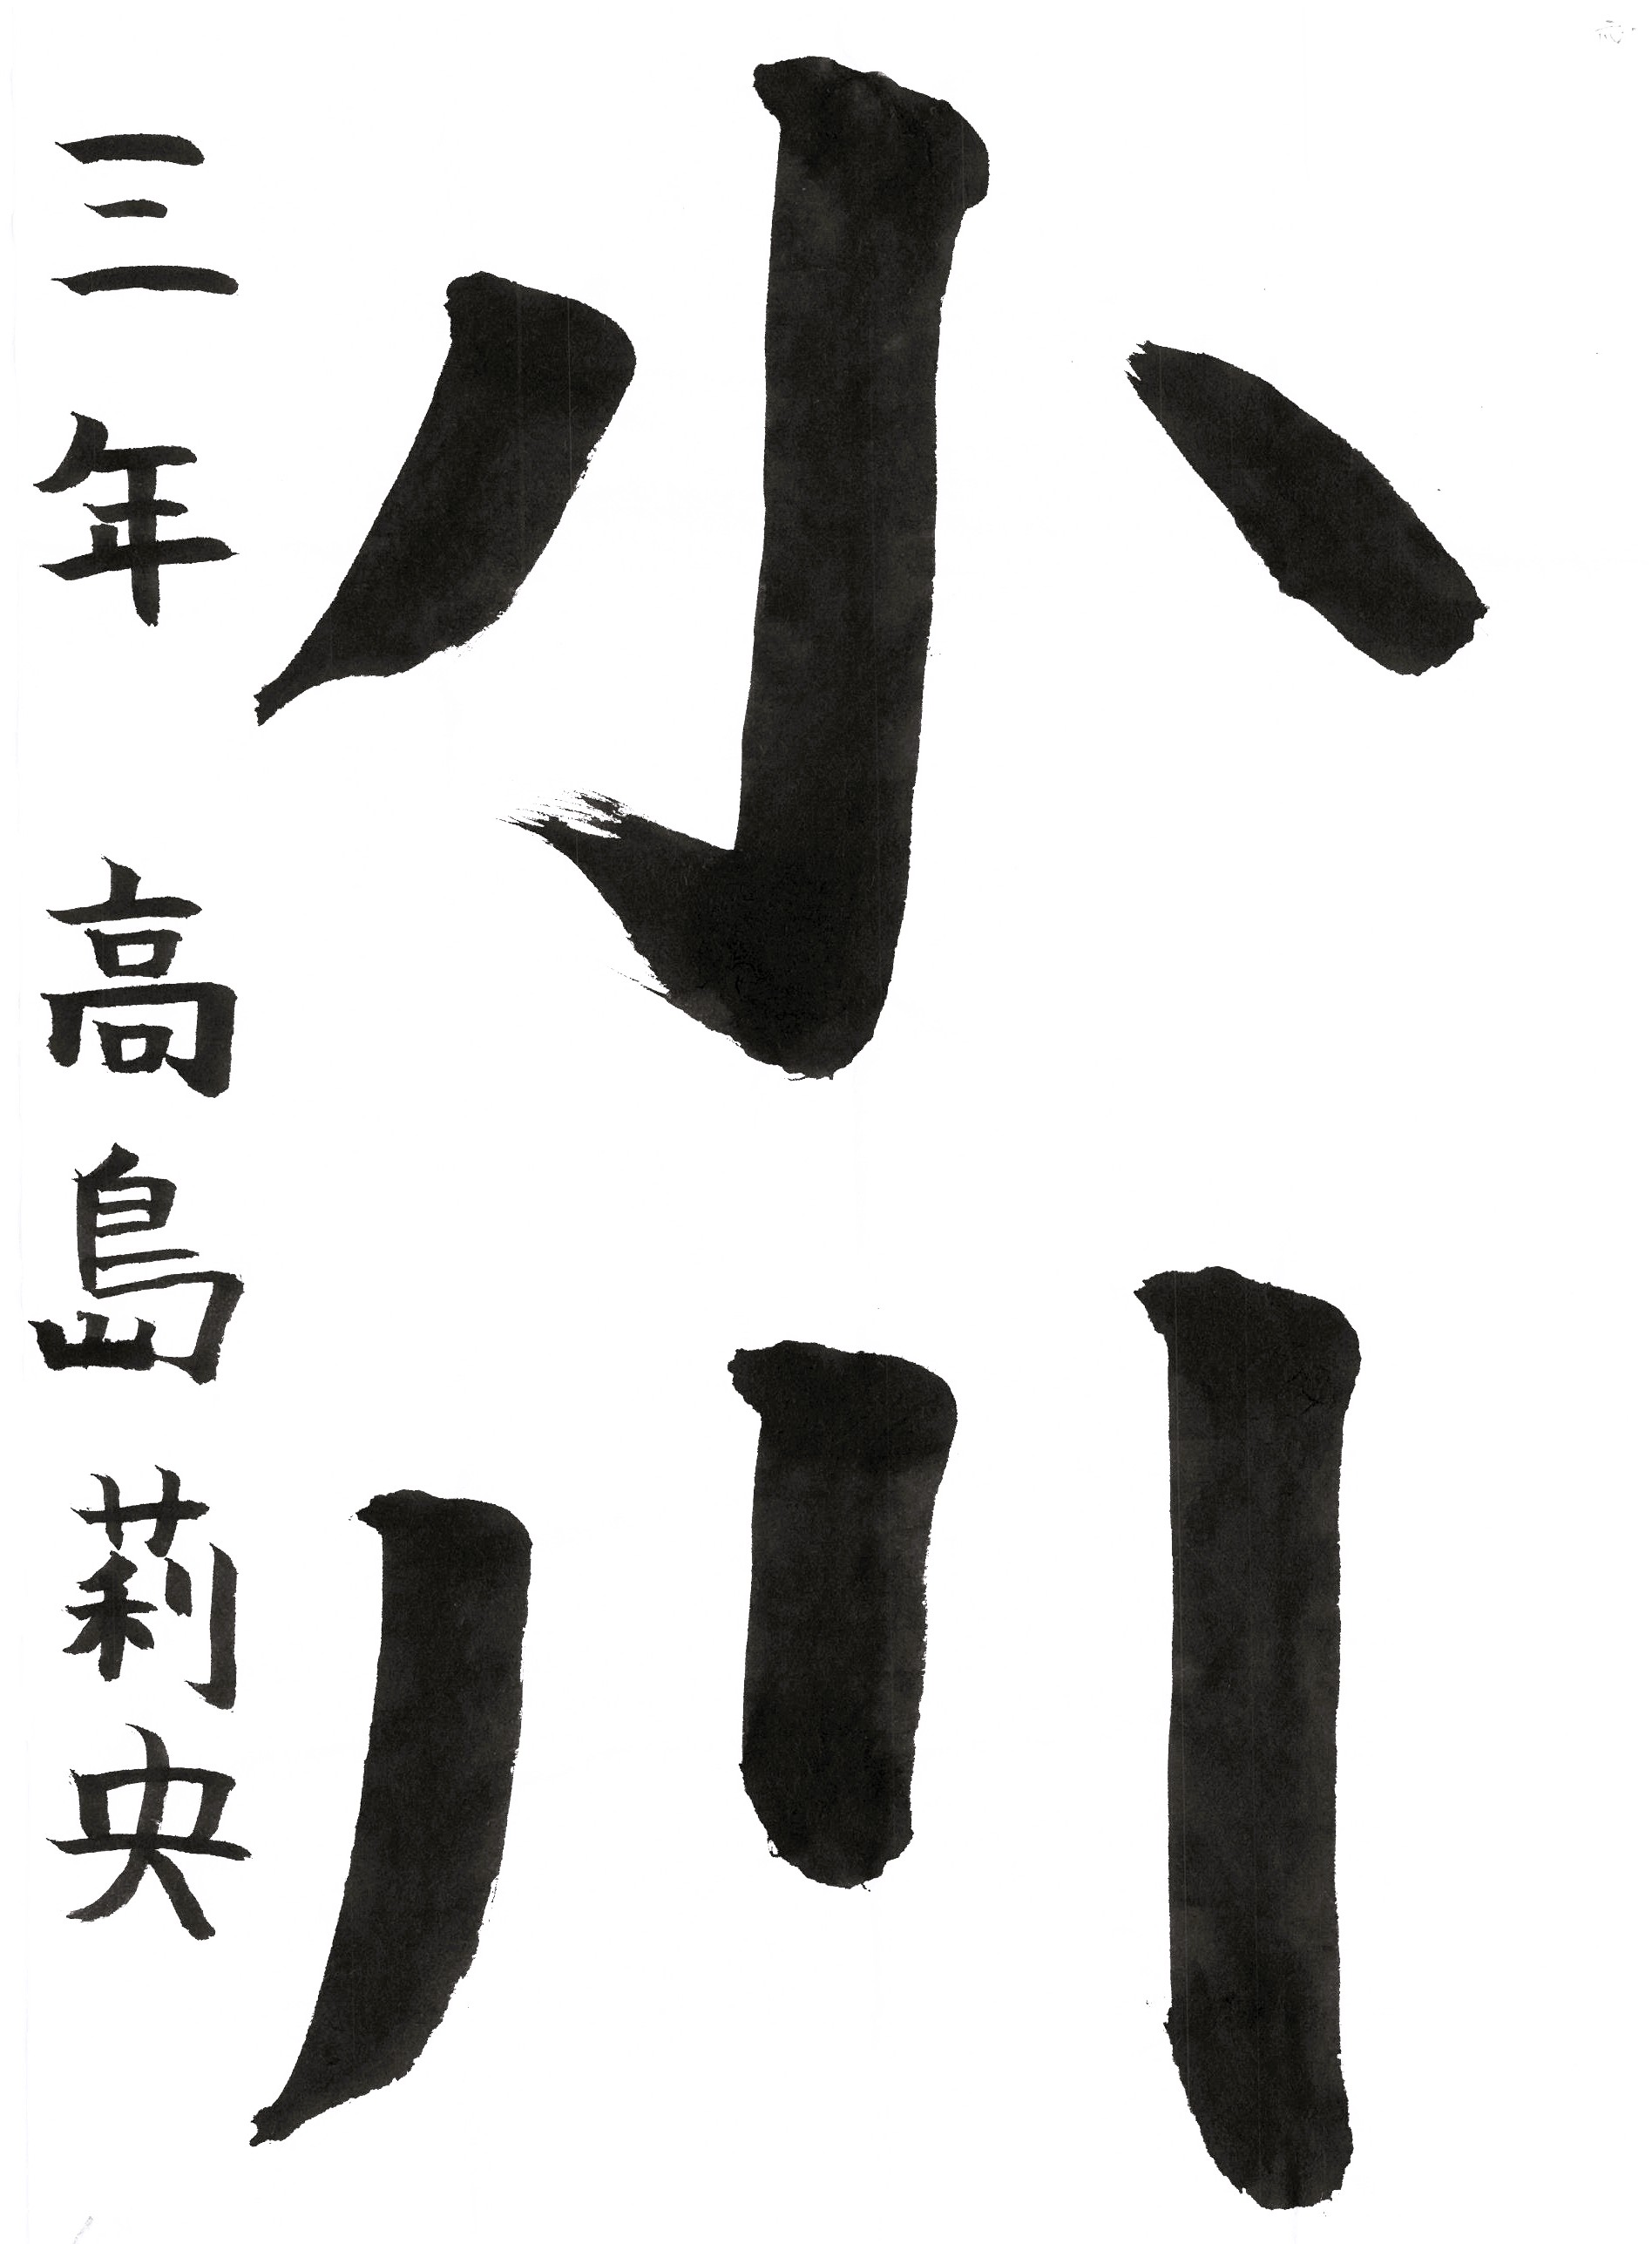 小川
三年 高島莉央